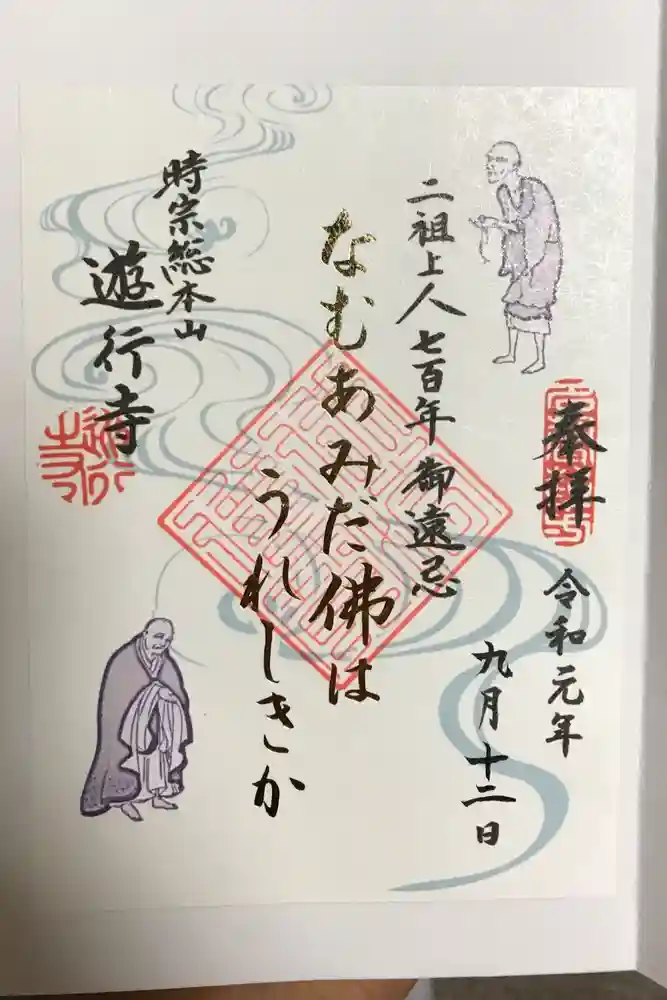 奉拝
令和元年
九月十二日
二祖上人七百年御遠忌
なむあみだ佛は
うれしきか
時宗総本山
遊行寺